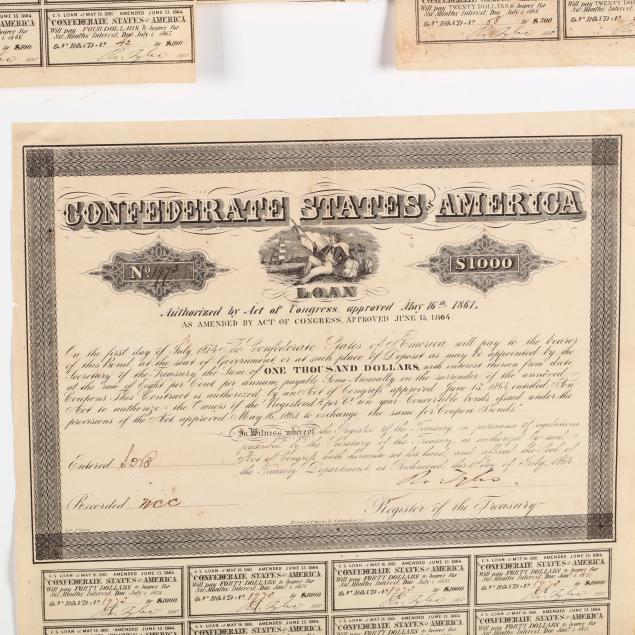 C.S. LOAN of MAY 16, 1861 AMENDED JUNE 13, 1864
CONFEDERATE STATES of AMERICA
Will pay FOUR DOLLARS to bearer for
Six Months Interest. Due July 1, 1865
ON BOND No 42 for $100
CONFEDERATE STATES of AMERICA
Will pay TWENTY DOLLARS to bearer for
Six Months Interest. Due July
ON BOND No 58 $500
CONFEDERATE STATES of AMERICA
No
$1000
LOAN
Authorized by Act of Congress, approved May 16th 1861,
AS AMENDED BY ACT OF CONGRESS, APPROVED JUNE 13, 1864.
On the first day of July, 1874 The Confederate States of America will pay to the bearer
of this Bond, at the seat of Government, or at such place of Deposit as may be appointed by the
Secretary of the Treasury, the Sum of ONE THOUSAND DOLLARS, with interest thereon from date
at the rate of Eight per Cent per annum, payable Semi Annually on the surrender of the annexed
Coupons. This Contract is authorized by an Act of Congress approved June 13, 1864 entitled "An
Act to authorize the Owners of the Registered Eight Per Ct ten year Convertible bonds issued under the
provisions of the Act approved May 16, 1861 to exchange the same for Coupon Bonds."
In Witness whereof the Register of the Treasury, in pursuance of regulations
prescribed by the Secretary of the Treasury, as authorized by said
Act of Congress, hath hereunto set his hand, and affixed the Seal of
the Treasury Department, at Richmond, this 1st day of July, 1864
Entered
Recorded WCC
Register of the Treasury
C.S. LOAN of MAY 16, 1861 AMENDED JUNE 13, 1864
CONFEDERATE STATES of AMERICA
Will pay FORTY DOLLARS to bearer for
Six Months Interest. Due July 1, 1874
ON BOND No for $1000
C.S. LOAN of MAY 16, 1861 AMENDED JUNE 13, 1864
CONFEDERATE STATES of AMERICA
Will pay FORTY DOLLARS to bearer for
Six Months Interest. Due Jany 1, 1874
ON BOND No for $1000
C.S. LOAN of MAY 16, 1861 AMENDED JUNE 13, 1864
CONFEDERATE STATES of AMERICA
Will pay FORTY DOLLARS to bearer for
Six Months Interest. Due July 1,
ON BOND No for $1000
C.S. LOAN of MAY 16, 1861 AMENDED JUNE 13, 1864
CONFEDERATE STATES of AMERICA
Will pay FORTY DOLLARS to bearer for
Six Months Interest. Due Jany 1,
ON BOND No for $1000
C.S. LOAN of MAY 16, 1861 AMENDED JUNE 13, 1864
CONFEDERATE STATES of AMERICA
C.S. LOAN of MAY 16, 1861 AMENDED JUNE 13, 1864
CONFEDERATE STATES of AMERICA
C.S. LOAN of MAY 16, 1861 AMENDED JUNE 13, 1864
CONFEDERATE STATES of AMERICA
C.S. LOAN of MAY 16, 1861 AMENDED JUNE 13, 1864
CONFEDERATE STATES of AMERICA